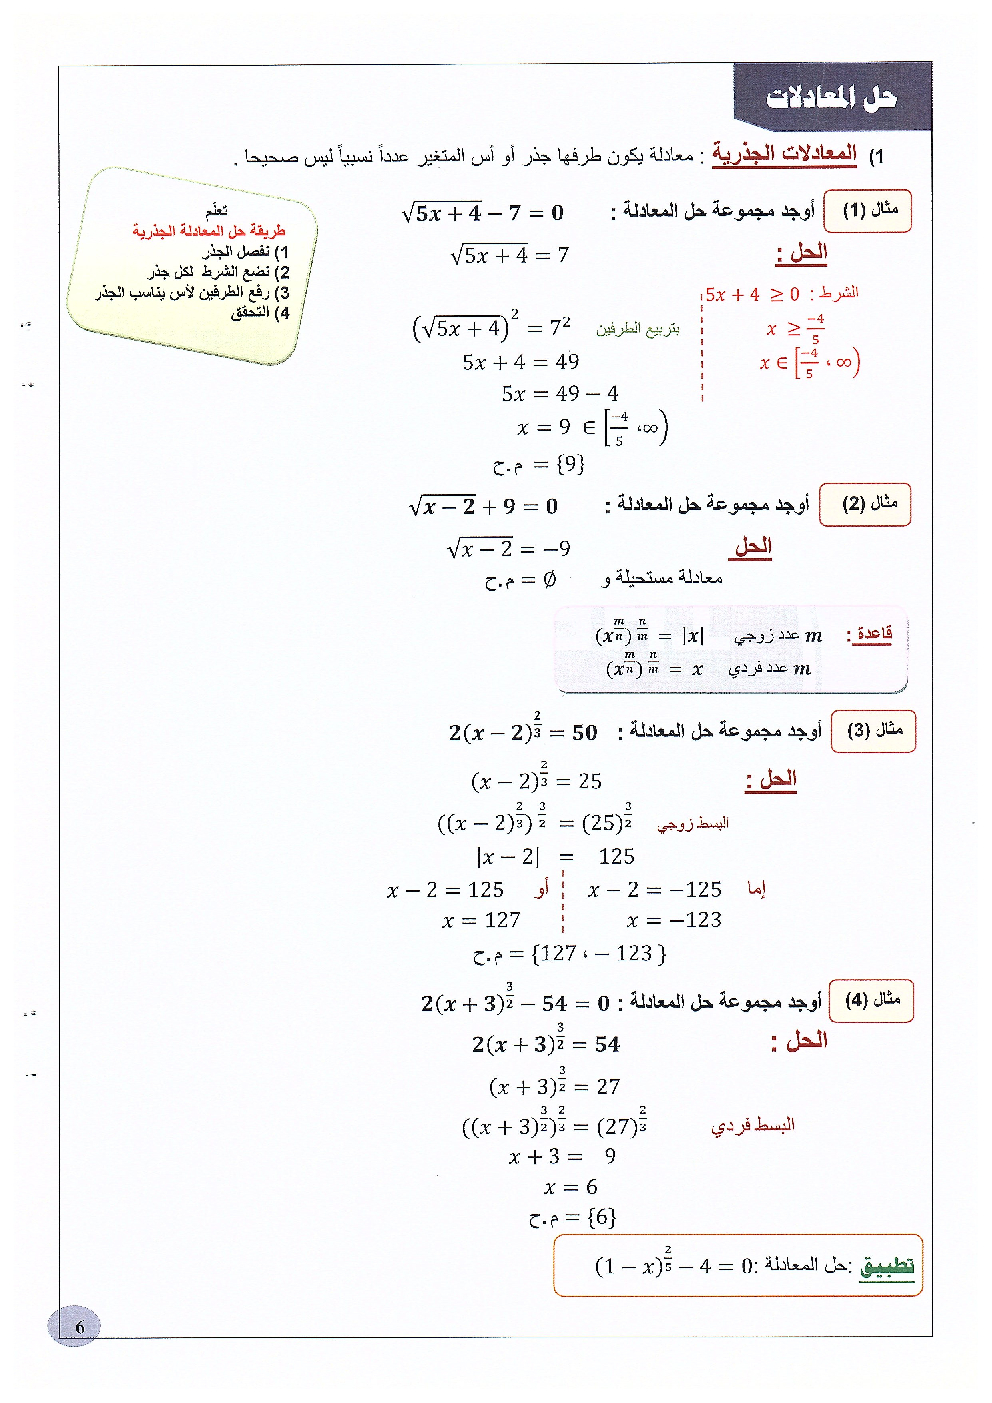 حل المعادلات
1) المعادلات الجذرية : معادلة يكون طرفها جذر أو أس المتغير عدداً نسبياً ليس صحيحا .
تعلّم
طريقة حل المعادلة الجذرية
1) نفصل الجذر
2) نضع الشرط لكل جذر
3) رفع الطرفين لأس يناسب الجذر
4) التحقق
مثال (1) أوجد مجموعة حل المعادلة : √(5x + 4) − 7 = 0
الحل : √(5x + 4) = 7
الشرط : 5x + 4 ≥ 0
x ≥ −4/5
x ∈ [−4/5 ، ∞)
(√(5x + 4))² = 7² بتربيع الطرفين
5x + 4 = 49
5x = 49 − 4
x = 9 ∈ [−4/5 ،∞)
م.ح = {9}
مثال (2) أوجد مجموعة حل المعادلة : √(x − 2) + 9 = 0
الحل √(x − 2) = −9
معادلة مستحيلة و م.ح = ∅
قاعدة : m عدد زوجي (x^(m/n))^(n/m) = |x|
m عدد فردي (x^(m/n))^(n/m) = x
مثال (3) أوجد مجموعة حل المعادلة : 2(x − 2)^(2/3) = 50
الحل : (x − 2)^(2/3) = 25
((x − 2)^(2/3))^(3/2) = (25)^(3/2) البسط زوجي
|x − 2| = 125
إما x − 2 = −125 أو x − 2 = 125
x = −123 x = 127
م.ح = {127 ، − 123 }
مثال (4) أوجد مجموعة حل المعادلة : 2(x + 3)^(3/2) − 54 = 0
الحل : 2(x + 3)^(3/2) = 54
(x + 3)^(3/2) = 27
((x + 3)^(3/2))^(2/3) = (27)^(2/3) البسط فردي
x + 3 = 9
x = 6
م.ح = {6}
تطبيق :حل المعادلة :(1 − x)^(2/5) − 4 = 0
6